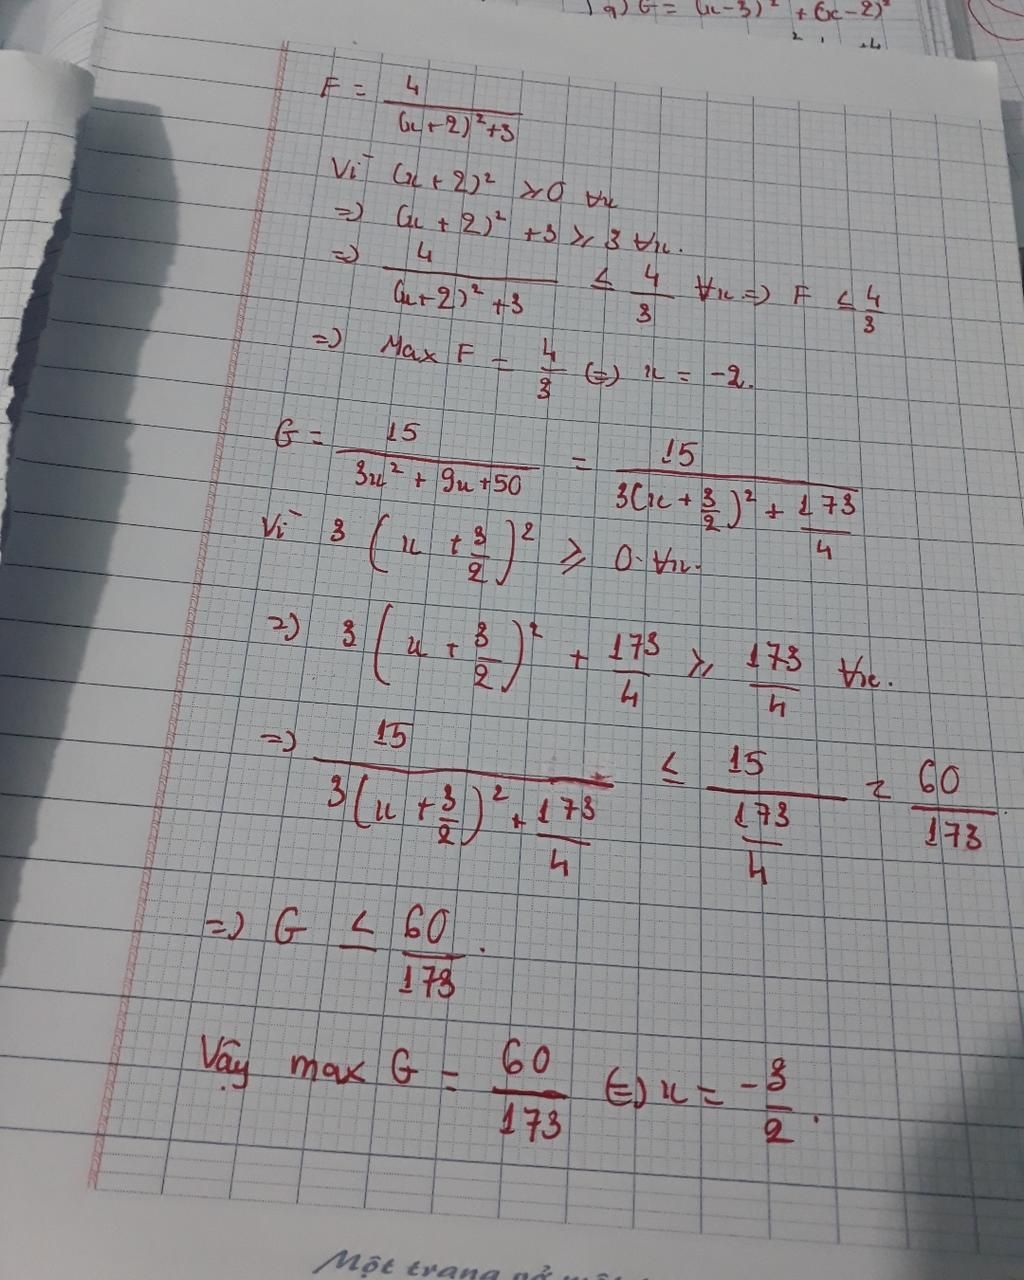 9) G = (x-3)² + (x-2)²
F = 4/((x+2)²+3)
Vì (x+2)² ≥ 0 ∀x
=> (x+2)² + 3 ≥ 3 ∀x.
=> 4/((x+2)²+3) ≤ 4/3 ∀x => F ≤ 4/3
=> Max F = 4/3 <=> x = -2.
G = 15/(3x² + 9x + 50) = 15/(3(x+3/2)² + 173/4)
Vì 3(x+3/2)² ≥ 0 ∀x.
=> 3(x+3/2)² + 173/4 ≥ 173/4 ∀x.
=> 15/(3(x+3/2)² + 173/4) ≤ 15/(173/4) = 60/173.
=> G ≤ 60/173.
Vậy max G = 60/173 <=> x = -3/2.
Một trang vở